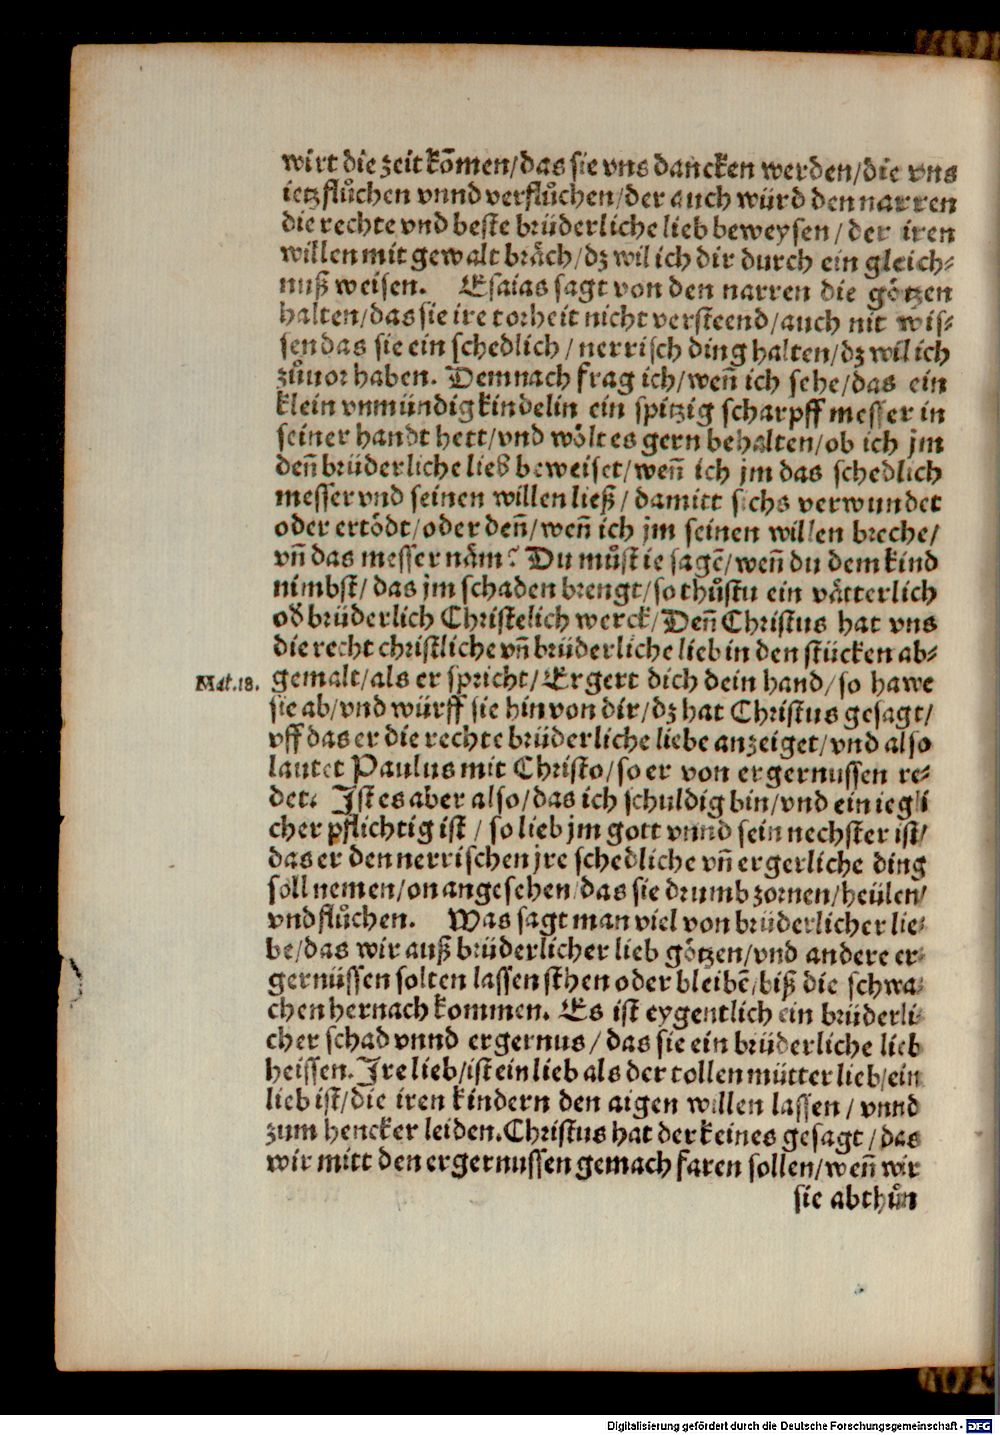 wirt die zeit kom̃en/das sie vns dancken werden/die vns
ietz flůchen vnnd verflůchen/der auch würd den narren
die rechte vnd beste brüderliche lieb beweysen/der iren
willen mit gewalt bräch/dz wil ich dir durch ein gleich-
nuß weisen. Esaias sagt von den narren die götzen
halten/das sie ire torheit nicht versteend/auch nit wis-
sen das sie ein schedlich/nerrisch ding halten/dz wil ich
zůuor haben. Demnach frag ich/weñ ich sehe/das ein
klein vnmündig kindelin ein spitzig scharpff messer in
seiner handt hett/vnd wölt es gern behalten/ob ich jm
deñ brüderliche lieb beweiset/weñ ich jm das schedlich
messer vnd seinen willen ließ/damitt sichs verwundet
oder ertödt/oder deñ/weñ ich jm seinen willen breche/
vñ das messer näm? Du můst ie sagẽ/weñ du dem kind
nimbst/das jm schaden brengt/so thůstu ein vätterlich
oď brüderlich Christelich werck/Deñ Christus hat vns
die recht christliche vñ brüderliche lieb in den stücken ab-
Mat.18. gemalt/als er spricht/Ergert dich dein hand/so hawe
sie ab/vnd würff sie hin von dir/dz hat Christus gesagt/
vff das er die rechte brüderliche liebe anzeiget/vnd also
lautet Paulus mit Christo/so er von ergernussen re-
det. Ist es aber also/das ich schuldig bin/vnd ein iegli
cher pflichtig ist/so lieb jm gott vnnd sein nechster ist/
das er den nerrischen jre schedliche vñ ergerliche ding
soll nemen/on angesehen/das sie drumb zornen/heülen/
vnd flůchen. Was sagt man viel von brüderlicher lie-
be/das wir auß brüderlicher lieb götzen/vnd andere er-
gernüssen solten lassen sthen oder bleibẽ/biß die schwa-
chen hernach kommen. Es ist eygentlich ein brüderli-
cher schad vnnd ergernus/das sie ein brüderliche lieb
heissen. Ire lieb/ist ein lieb als der tollen mütter lieb/ein
lieb ist/die iren kindern den aigen willen lassen/vnnd
zum hencker leiden. Christus hat der keines gesagt/das
wir mitt den ergernussen gemach faren sollen/weñ wir
sie abthůn
Digitalisierung gefördert durch die Deutsche Forschungsgemeinschaft - DFG